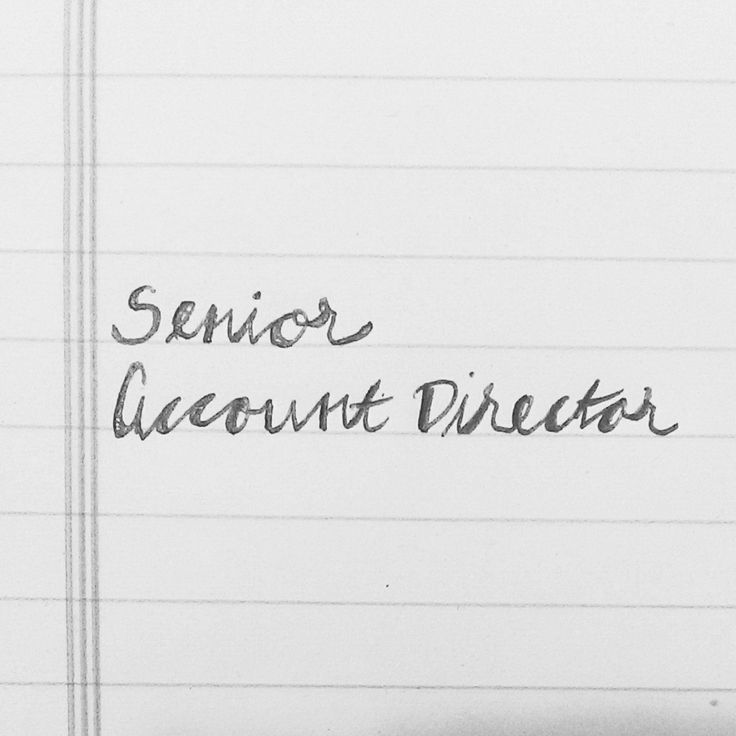 Senior
Account Director